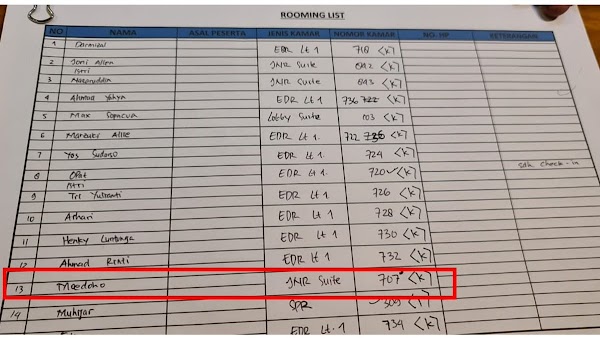 ROOMING LIST
NO NAMA ASAL PESERTA JENIS KAMAR NOMOR KAMAR NO. HP KETERANGAN
1 Darmizal EDR Lt 1 718 <K>
2 Joni Allen JNR Suite 842 <K>
Istri
3 Nazaruddin JNR Suite 843 <K>
4 Ahmad Yahya EDR Lt 1 736 722 <K>
5 Max Sopacua Lobby Suite 103 <K>
6 Marzuki Alie EDR Lt 1. 722 736 <K>
7 Yos Sudarso EDR Lt 1. 724 <K>
8 Opat EDR Lt 1. 720 <K> sdh check-in
Istri
9 Tri Yulianti EDR Lt 1 726 <K>
10 Ashari EDR Lt 1 728 <K>
11 Henky Luntungan EDR Lt 1 730 <K>
12 Ahmad EDR Lt 1 732 <K>
13 Moeldoko JNR Suite 707 <K>
14 Muhajar SPR 309
EDR Lt. 1 734 <K>